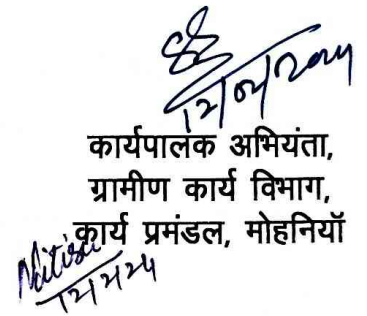 12/02/2024
कार्यपालक अभियंता,
ग्रामीण कार्य विभाग,
कार्य प्रमंडल, मोहनियॉ
Nitish
12/2/24